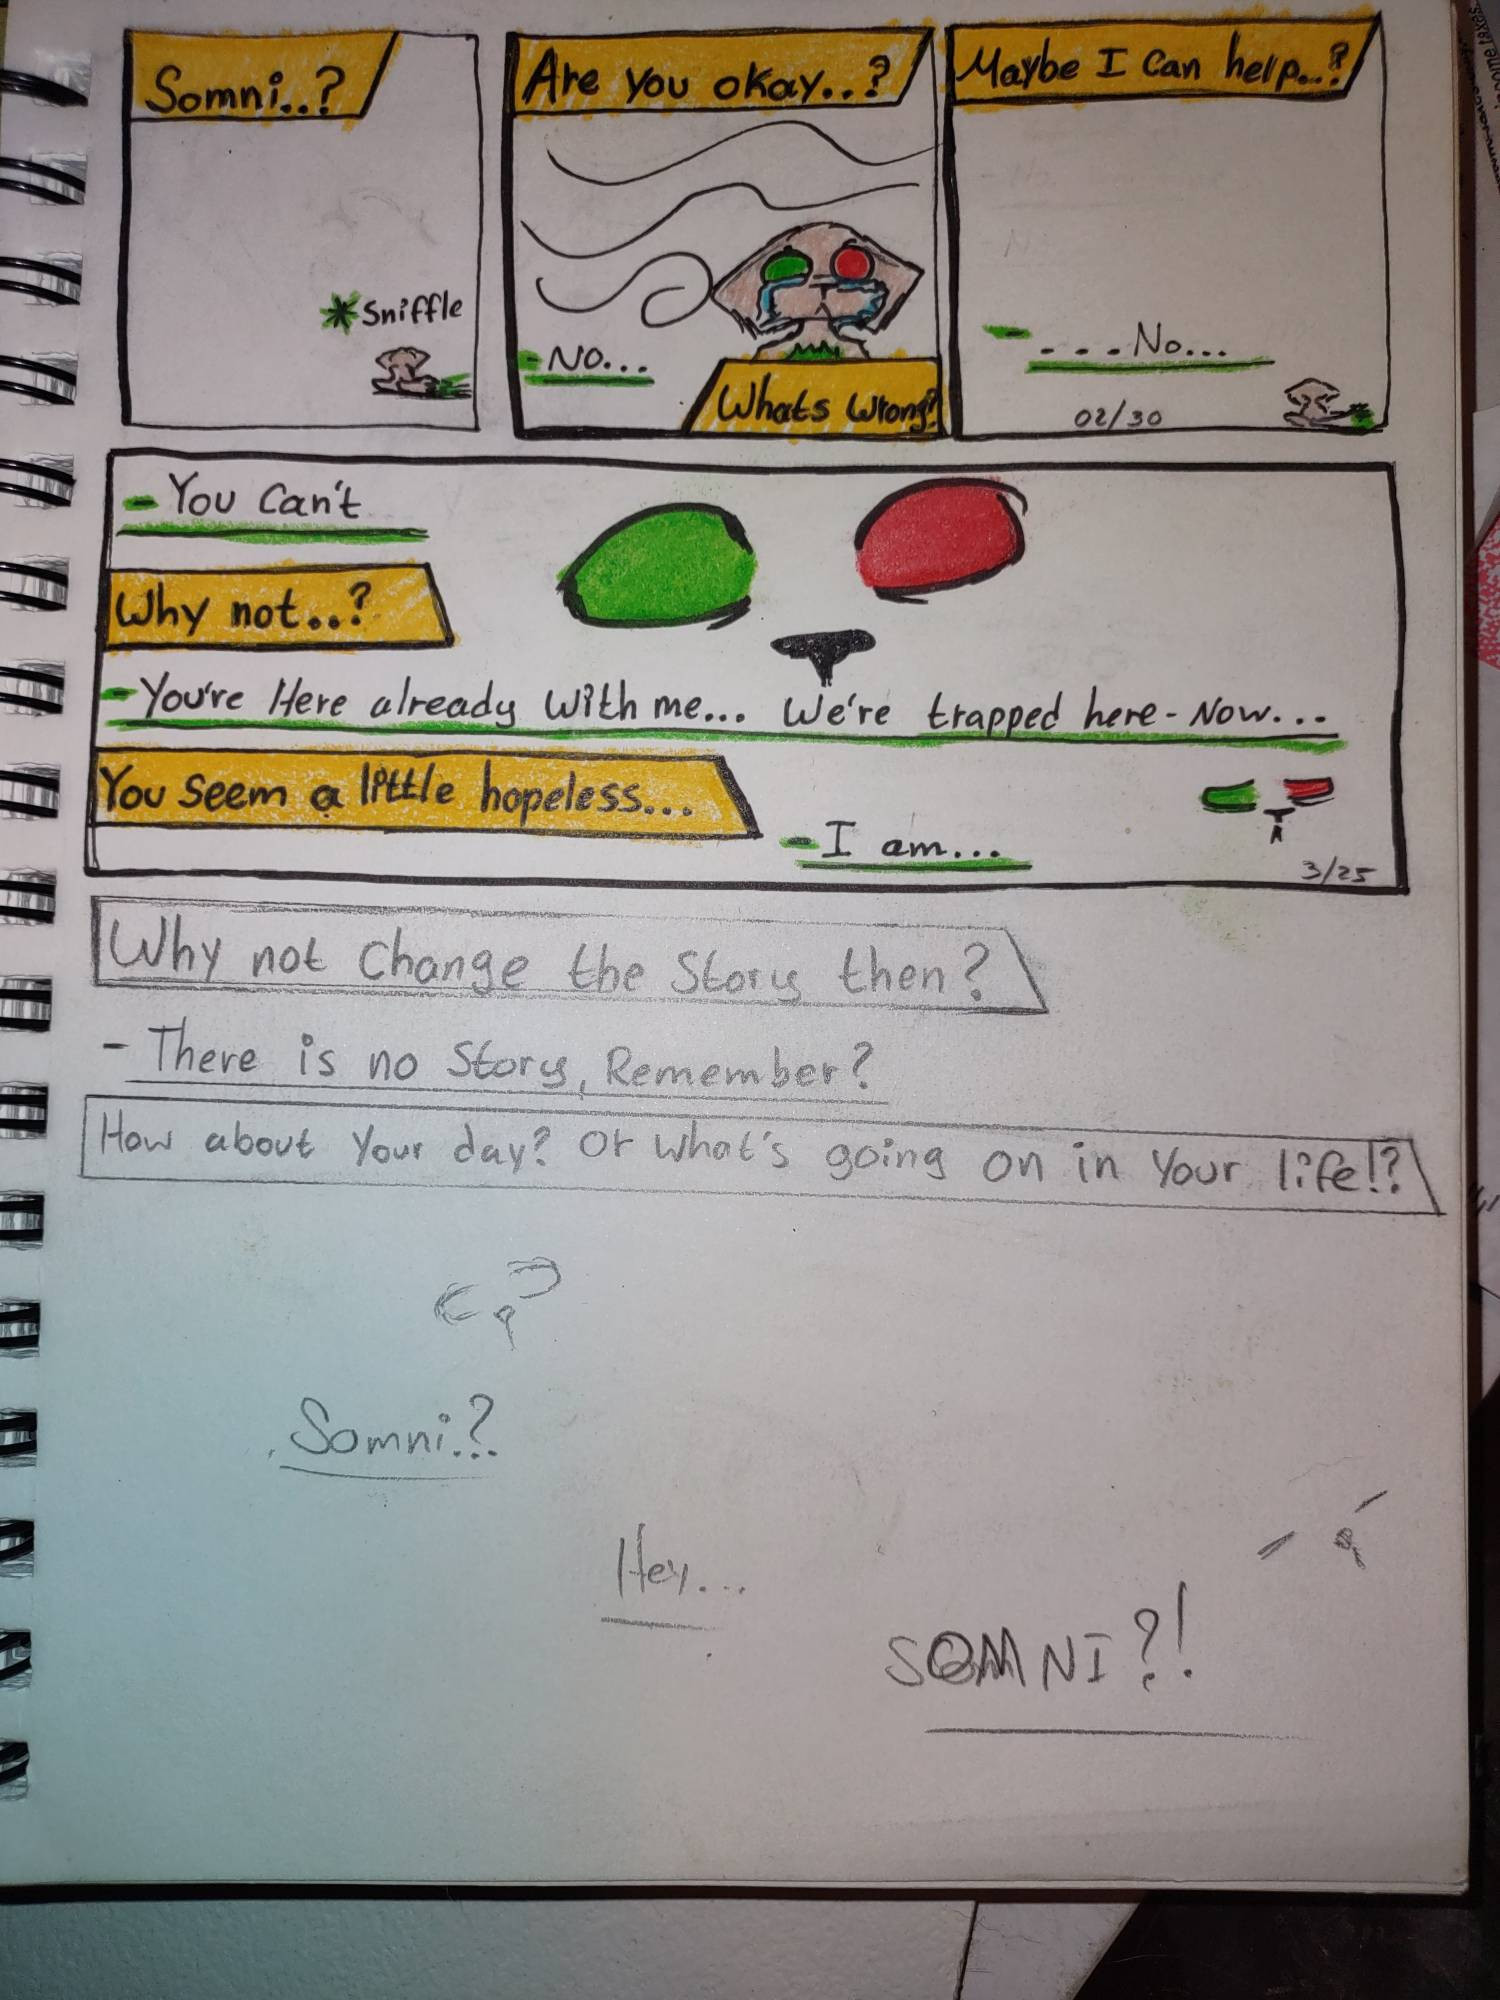 Somni..?
*Sniffle
Are you okay..?
-No...
Whats Wrong?
Maybe I Can help...?
- . . . No...
02/30
-You Can't
Why not..?
-You're Here already With me... We're trapped here-Now...
You Seem a little hopeless...
-I am...
3/25
Why not Change the Story then?
-There is no Story, Remember?
How about Your day? Or What's going on in Your life!?
Somni.?
Hey...
SOMNI?!